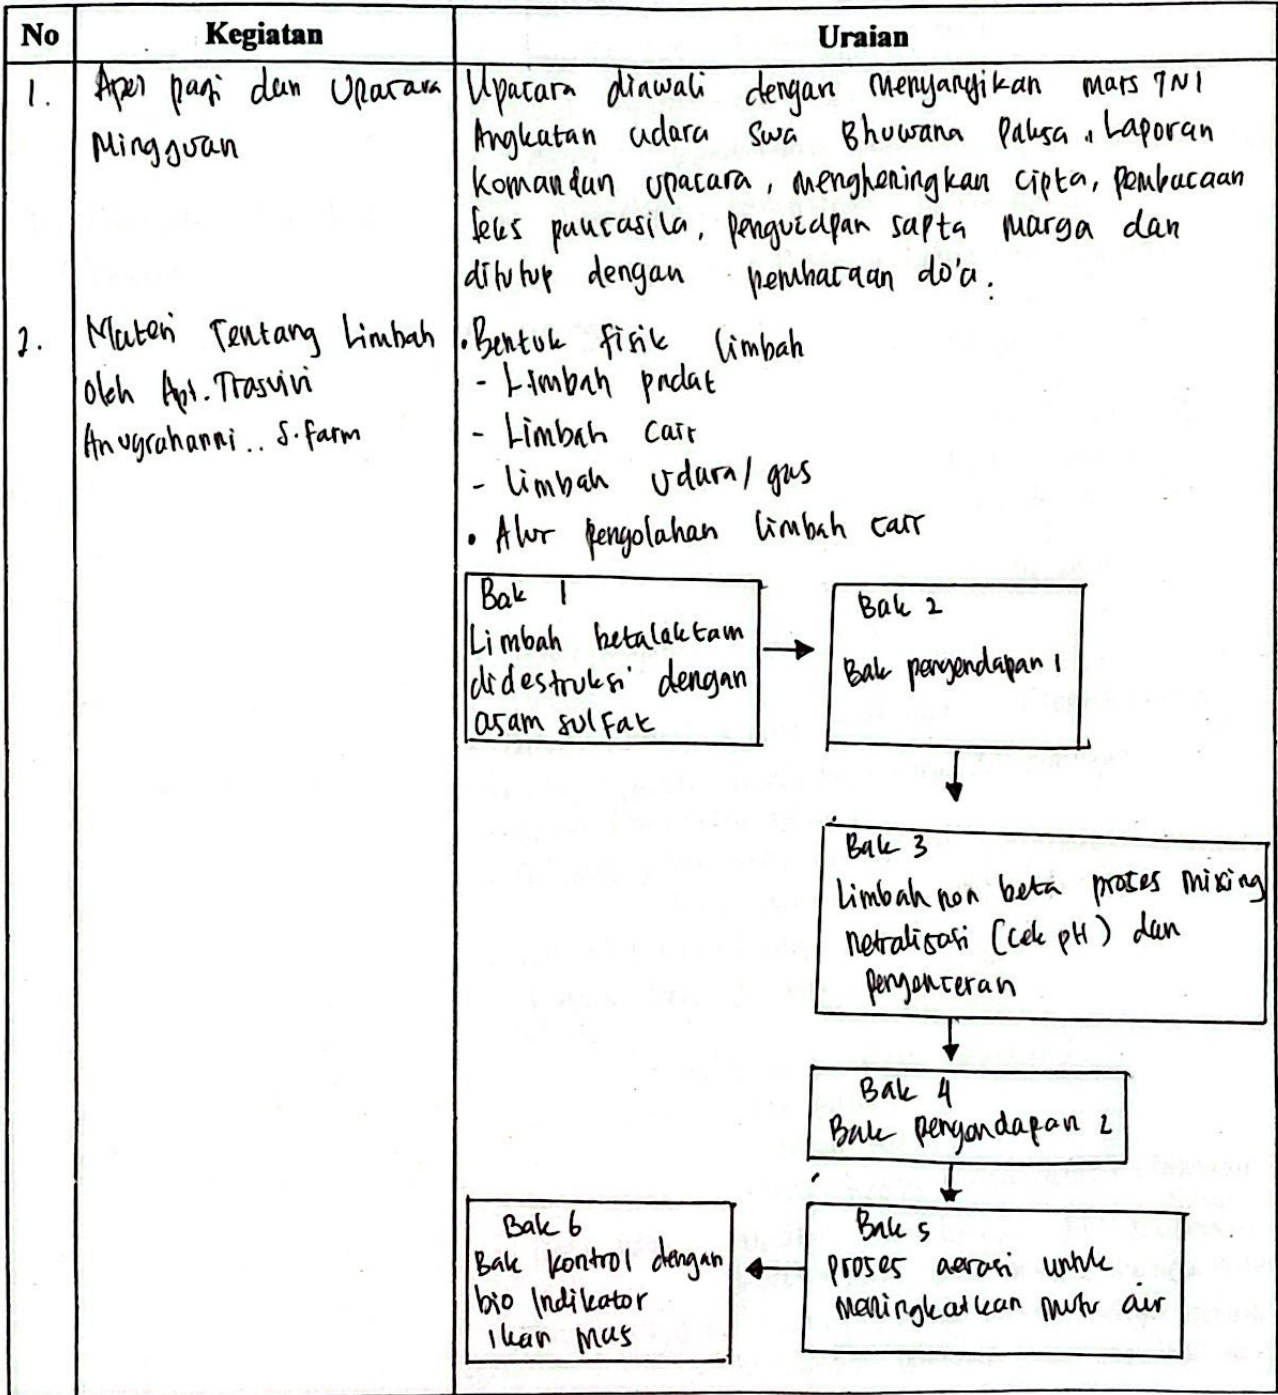 No Kegiatan Uraian
1. Apel pagi dan Upacara
Mingguan
Upacara diawali dengan Menyanyikan mars TNI
Angkatan udara Swa Bhuwana Paksa, Laporan
komandan upacara, mengheningkan cipta, pembacaan
teks pancasila, pengucapan sapta marga dan
ditutup dengan pembacaan do'a.
2. Materi Tentang Limbah
oleh Apt. Trasvivi
Anugrahanni.. S.farm
• Bentuk fisik limbah
- Limbah padat
- Limbah cair
- limbah udara/gas
• Alur pengolahan limbah cair
Bak 1
Limbah betalaktam
didestruksi dengan
asam sulfat
Bak 2
Bak pengendapan 1
Bak 3
Limbah non beta proses mixing
netralisasi (cek pH) dan
pengenceran
Bak 4
Bak pengendapan 2
Bak 5
proses aerasi untuk
meningkatkan mutu air
Bak 6
Bak kontrol dengan
bio Indikator
ikan mas